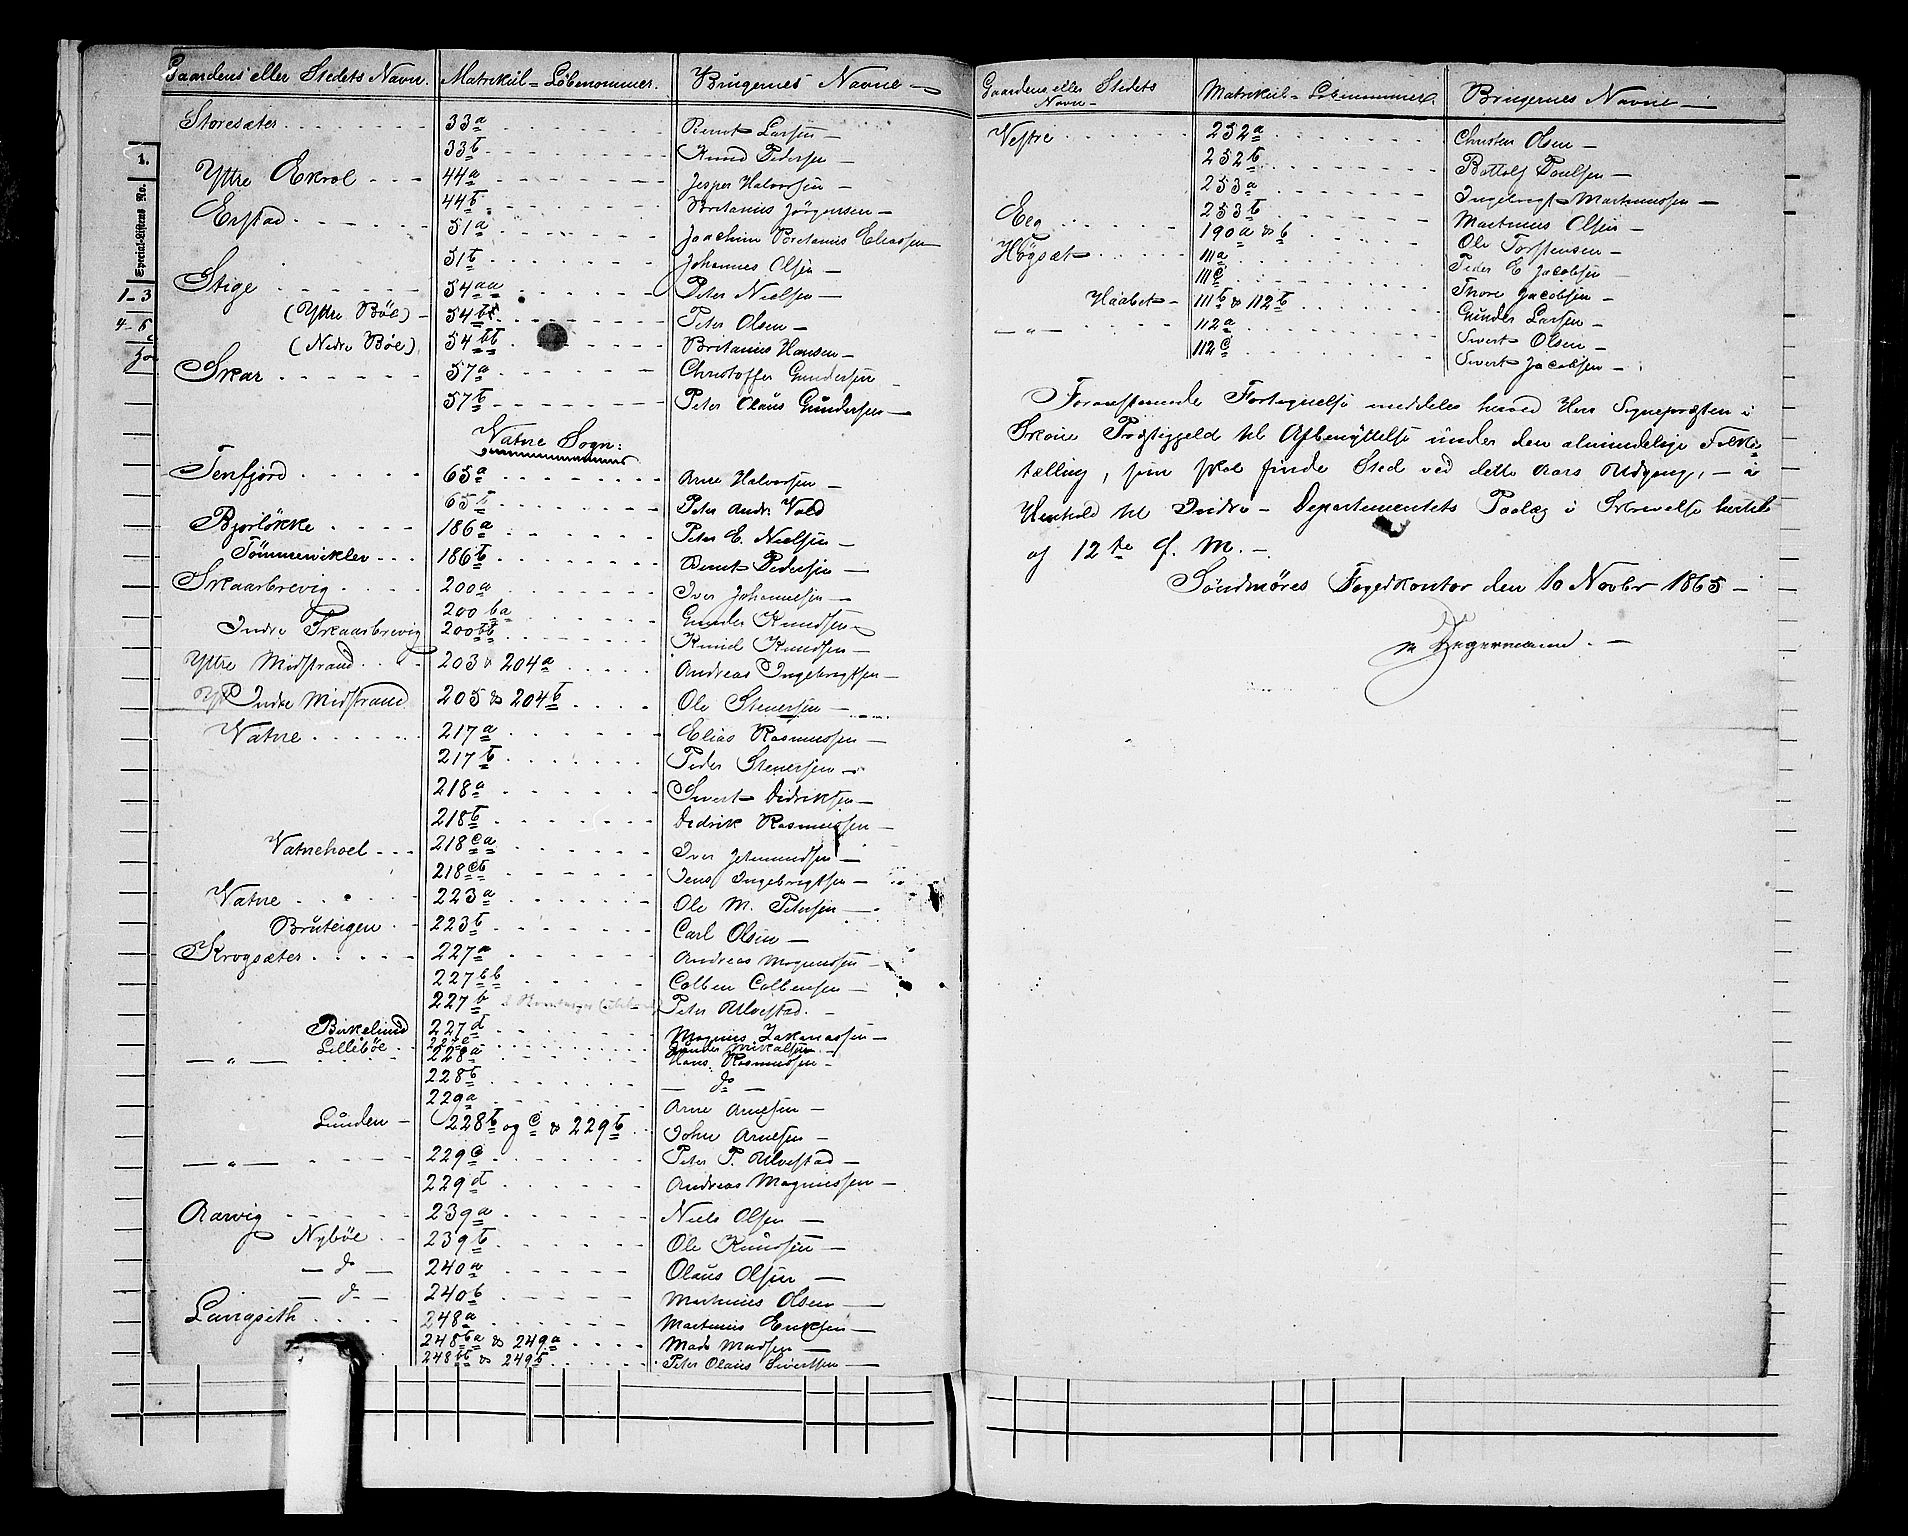 Gaardens eller Stedets Navn. Matrikül-Löbenommer. Brugernes Navne
Storesæter 33a Bernt Larsen
33b Knud Pedersen
Yttre Ækrol 44a Jesper Halvorsen
44b Britanius Jørgensen
Erstad 51a Joachim Britanius Eliassen
51b Johannes Olsen
Stige 54aa Peter Nielsen
(Yttre Böe) 54 Peter Olsen
(Nedre Böe) 54bb Britanius Hansen
Skar 57a Christoffer Gundersen
57b Peter Olaus Gundersen
Vatne Sogn:
Tenfjord 65a Arne Halvorsen
65b Peter Andr: Vold
Bjørløkke 186a Peter E. Nielsen
Tömmervikler 186b Bernt Pedersen
Skaarbrevig 200a Iver Johannesen
200 ba Gunder Knudsen
Indre Skaarbrevig 200bb Knud Knudsen
Yttre Midstrand 203 & 204a Andreas Ingebrigtsen
Indre Midstrand 205 & 204b Ole Steuersen
Vatne 217a Elias Rasmussen
217b Peder Steuersen
218a Sivert Didriksen
218b Didrik Rasmussen
Vatnehoel 218ca Iver Johannesen
218cb Jens Ingebrigtsen
Vatne 223a Ole M. Petersen
Bruteigen 223b Carl Olsen
Krogsæter 227a Andreas Magnussen
227bb Colben Colbensen
227b Peter Ulvestad
Birkelund 227d Magnus Zakariassen
Lillebøe Gunder Mikalsen
— " — 228a Hans Rasmussen
228b — do —
229a Arne Arnesen
Lunden 228b og c & 229b John Arnesen
— " — 229c Peter P. Ulvestad
229d Andreas Magnussen
Aarvig 239a Niels Olsen
Nyböe 239b Ole Knudsen
— do — 240a Olaus Olsen
— do — 240b Martinus Olsen
Langseth 248a Martinus Eriksen
248ba & 249a Mads Madsen
248bb & 249b Peter Olaus Sivertsen
1.
Special-Listens No.
1-3
Gaardens eller Stedets Navn Matrikül-Löbenummer. Brugernes Navne
Vestre 252a Christen Olsen
252b Bottolf Poulsen
253a Ingebrigt Martinussen
253b Martinus Olsen
Eeg 190a & b Ole Torstensen
Høgsæt 111a Peder E Jacobsen
111c Thore Jacobsen
Haabet 111b & 112b Gunder Larsen
— " — 112a Sivert Olsen
112c Sivert Jacobsen
Foranstaaende Fortegnelse meddeles herved Herr Sognepræsten i
Skoue Præstegjeld til Afbenyttelse under den almindelige Folke-
tælling, som skal finde Sted ved dette Aars Udgang, — i
Henhold til Indre-Departementets Paalæg i Skrivelse hertil
af 12te f. M.
Søndmöres Fogedkontor den 10 Novbr 1865
Degermann.